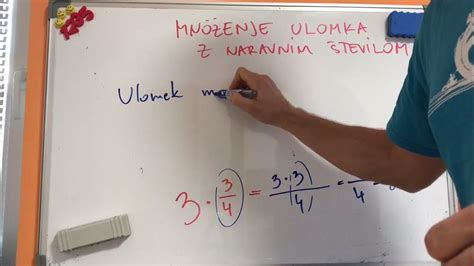 MNOŽENJE ULOMKA
Z NARAVNIM ŠTEVILOM
Ulomek m
3 · 3/4 = 3·3/4 = /4